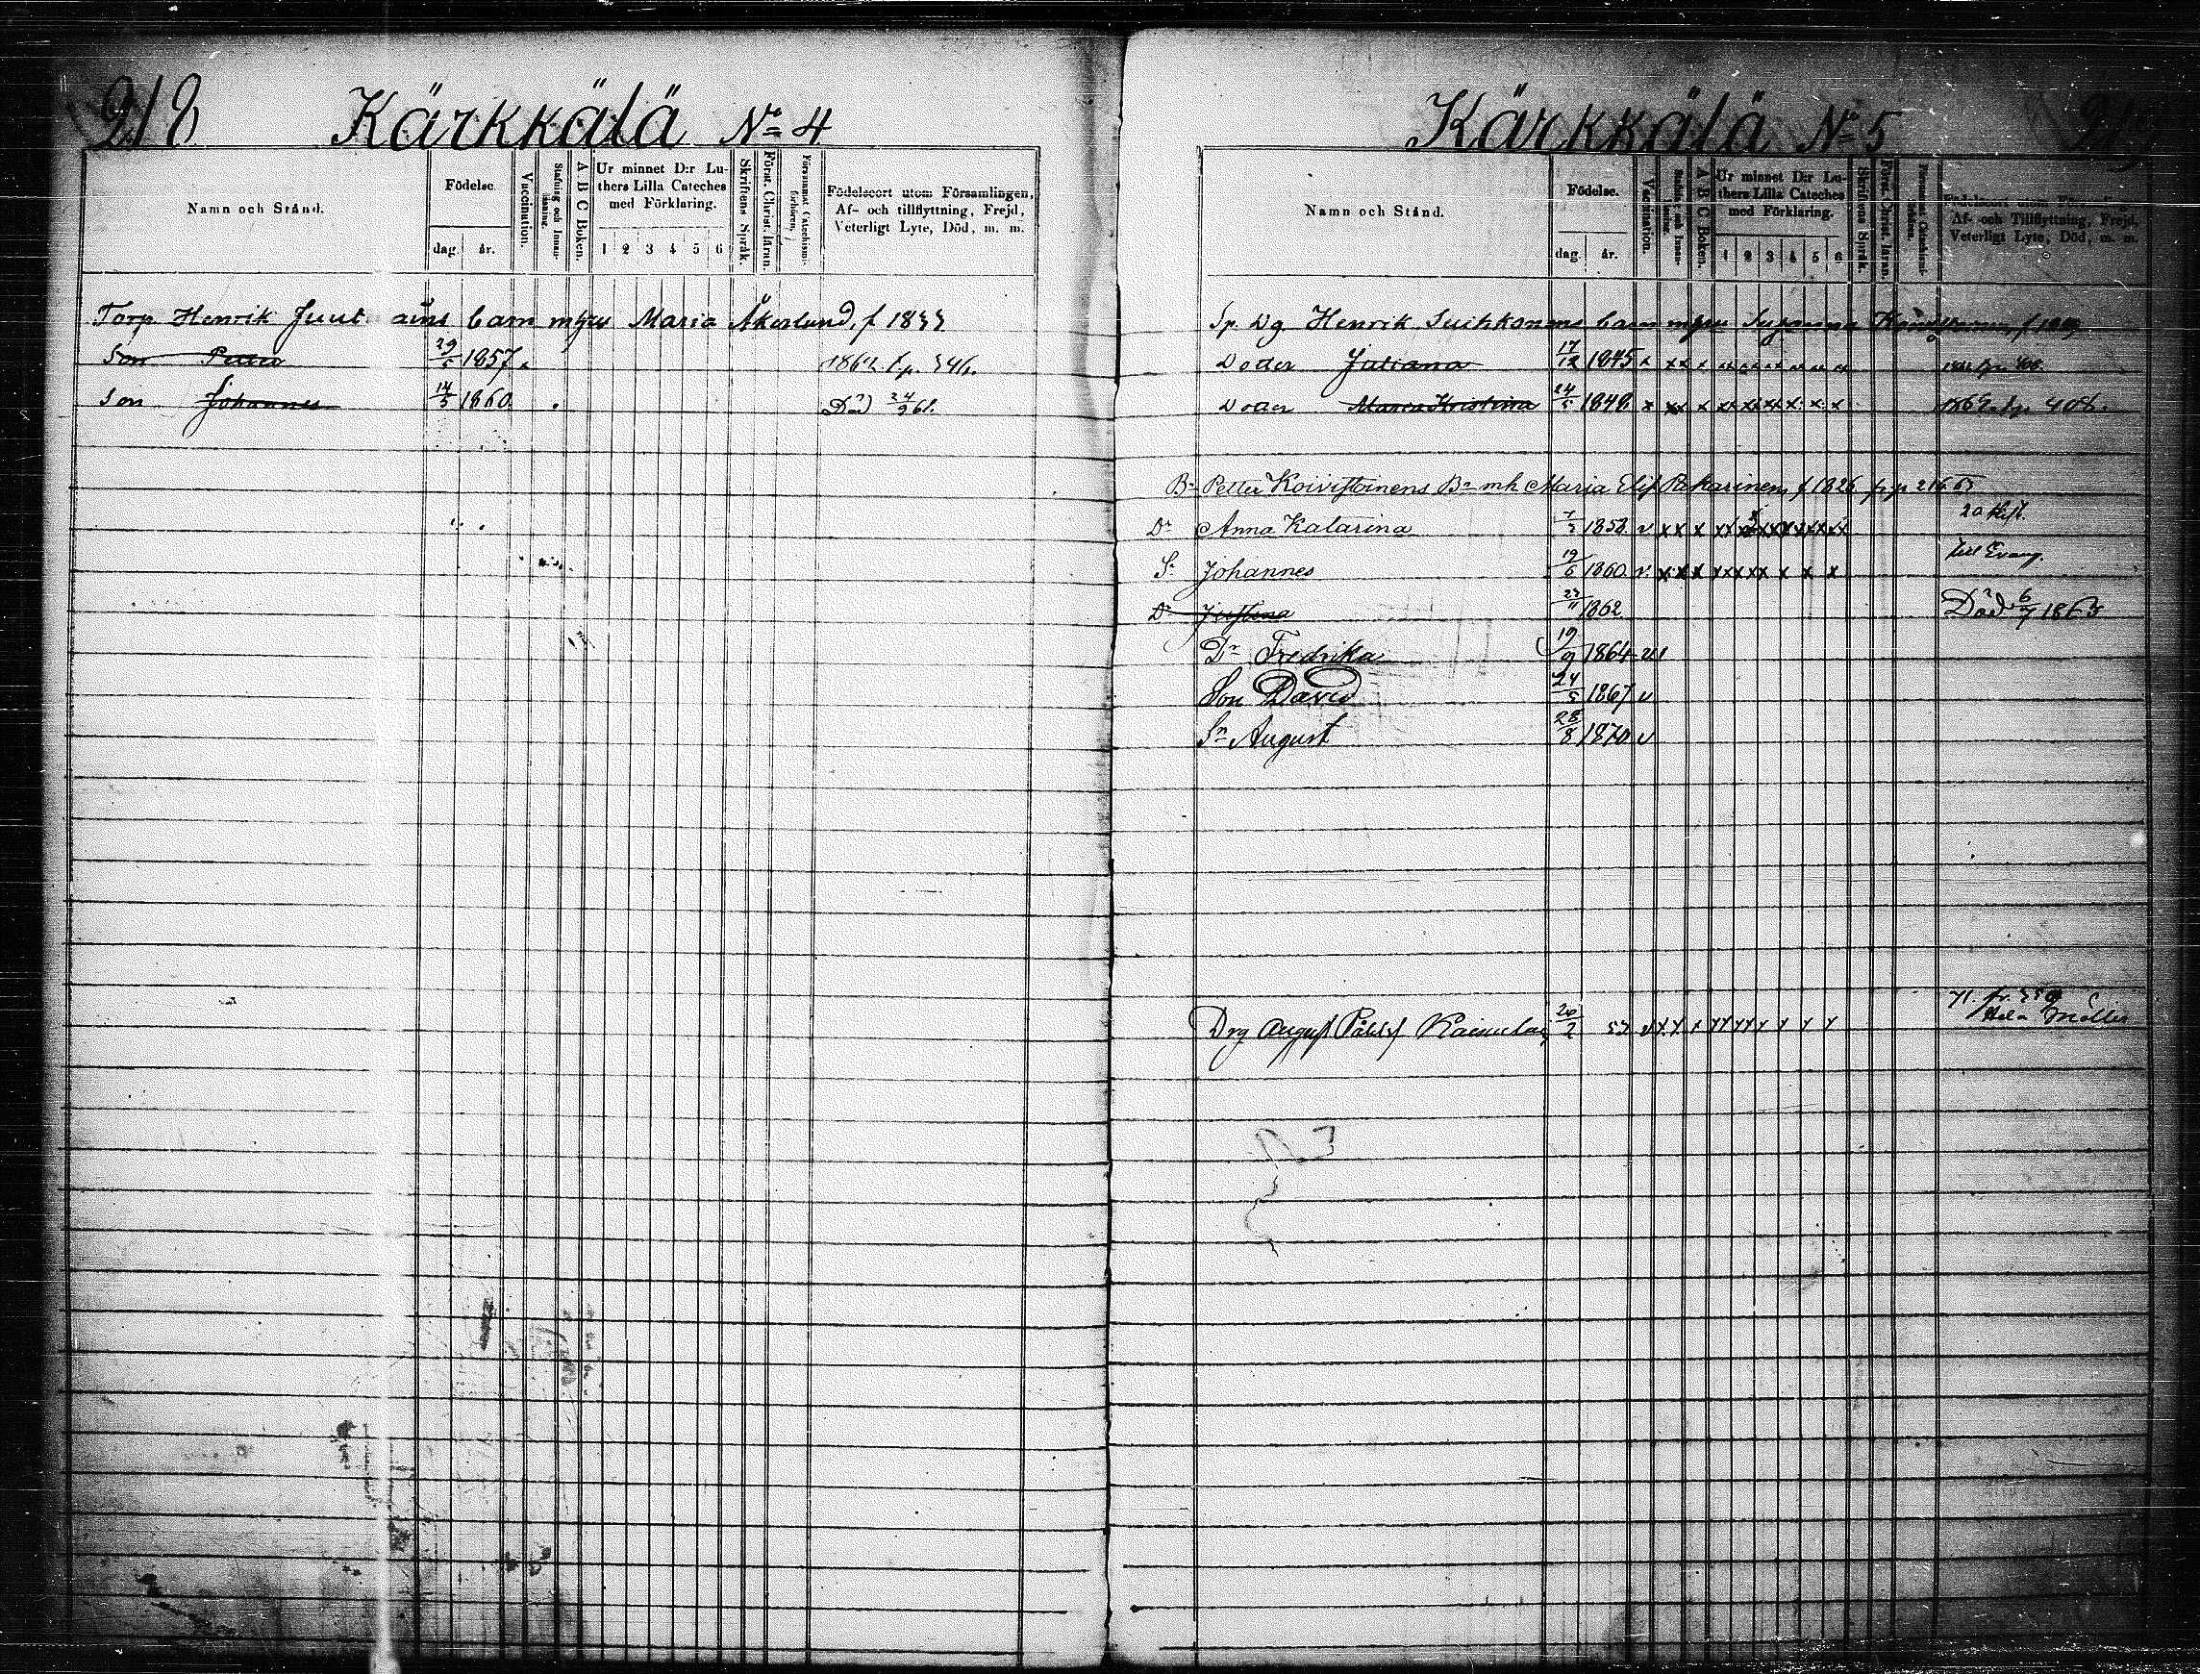 218
Kärkkälä No 4
Namn och Stånd.
Födelse.
dag. år.
Vaccination.
Stafning och Innanläsning.
A B C Boken.
Ur minnet D:r Luthers Lilla Cateches med Förklaring.
1 2 3 4 5 6
Skriftens Språk.
Först. Christ. läran.
Försummat Catechismiförhören.
Födelseort utom Församlingen,
Af- och tillflyttning, Frejd,
Veterligt Lyte, Död, m. m.
Torp Henrik Juut ains barn mhru Maria Åkerlund, f 1833
Son Petter 29/5 1857
Son Johannes 14/5 1860 Död 24/9 61.
Kärkkälä No 5
219
Namn och Stånd.
Födelse.
dag. år.
Vaccination.
Stafning och Innanläsning.
A B C Boken.
Ur minnet D:r Luthers Lilla Cateches med Förklaring.
1 2 3 4 5 6
Skriftens Språk.
Först. Christ. läran.
Försummat Catechismiförhören.
Födelseort utom Församlingen,
Af- och Tillflyttning, Frejd,
Veterligt Lyte, Död, m. m.
Sp. Dg Henrik Suihkonens barn
Dotter Juliana 17/12 1845 x xx x
Dotter Maria Kristina 24/5 1848 x xx x xx xx xx x x x 1869 p. 408.
Bn Petter Koivistoinens Bn mh Maria Elis. Pekarinen, f 1826
Dr Anna Katarina 1858 v xx x
Sn Johannes 19/6 1860 v. xx x xx xx xx x x x till Evang.
Dr Justina 23/11 1862. Död 6/7 1863
Dr Fredrika 19/9 1864 v
Son David 24/5 1867 v
Sn August 28/8 1870 v
Drg August 26/2 53 v